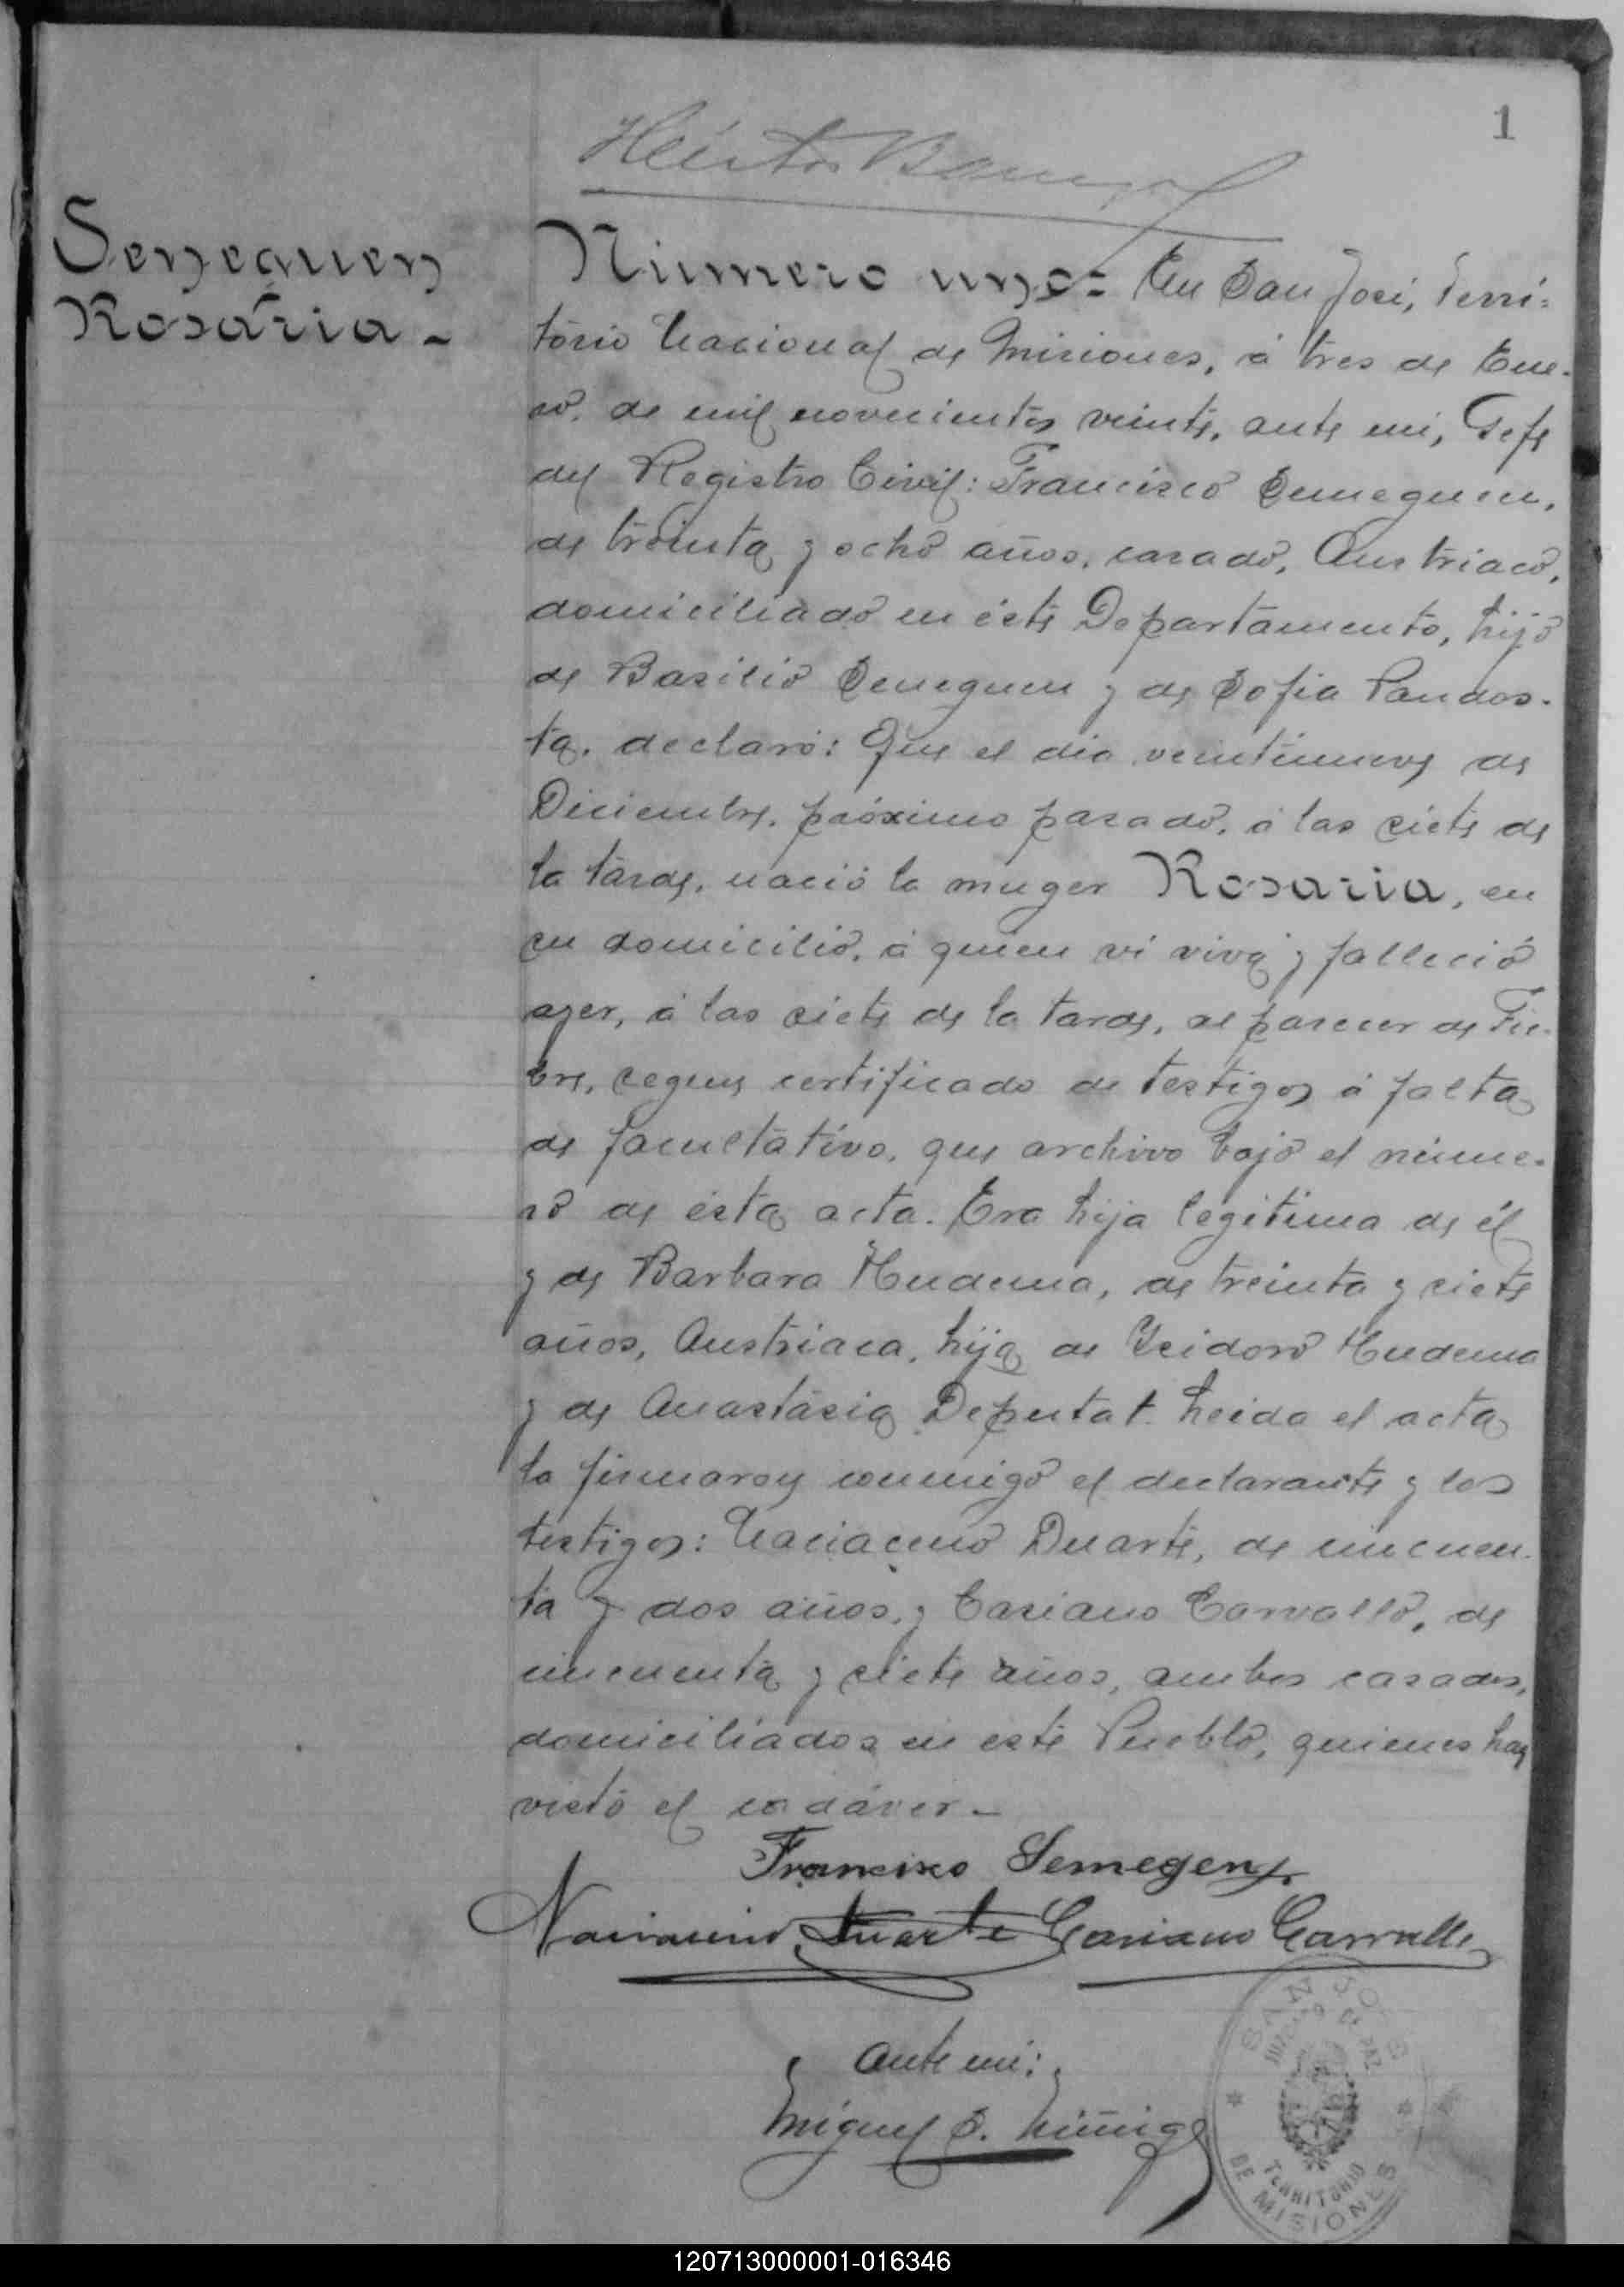 1
Héctor
Senequen
Rosaria -
Número uno= En San José, Terri=
torio Nacional de Misiones, á tres de Ene-
ro, de mil novecientos veinte, ante mi, Gefe
del Registro Civil: Francisco Semeguen,
de treinta y ocho años, casado, Austriaco,
domiciliado en éste Departamento, hijo
de Basilio Semeguen y de Sofia Pandos-
ta, declaró: Que el dia veintinueve de
Diciembre, próximo pasado, á las siete de
la tarde, nació la muger Rosaria, en
su domicilio, á quien vi viva y falleció
ayer, á las siete de la tarde, al parecer de Fie-
bre, segun certificado de testigos á falta
de facultativo, que archivo bajo el núme-
ro de ésta acta. Era hija legitima de él
y de Barbara Hudema, de treinta y siete
años, Austriaca, hija de Isidoro Hudema
y de Anastásia Deputat. Leida el acta
la firmaron conmigo el declarante y los
testigos: Naciaceno Duarte, de cincuen-
ta y dos años, y Casiano Carvallo, de
cincuenta y siete años, ambos casados,
domiciliados en este Pueblo, quienes han
visto el cadáver -
Francisco Semegen
Duarte Casiano Carvallo
Ante mi:
Miguel S.
SAN JOSE
JUZGADO DE PAZ
TERRITORIO
DE MISIONES
120713000001-016346